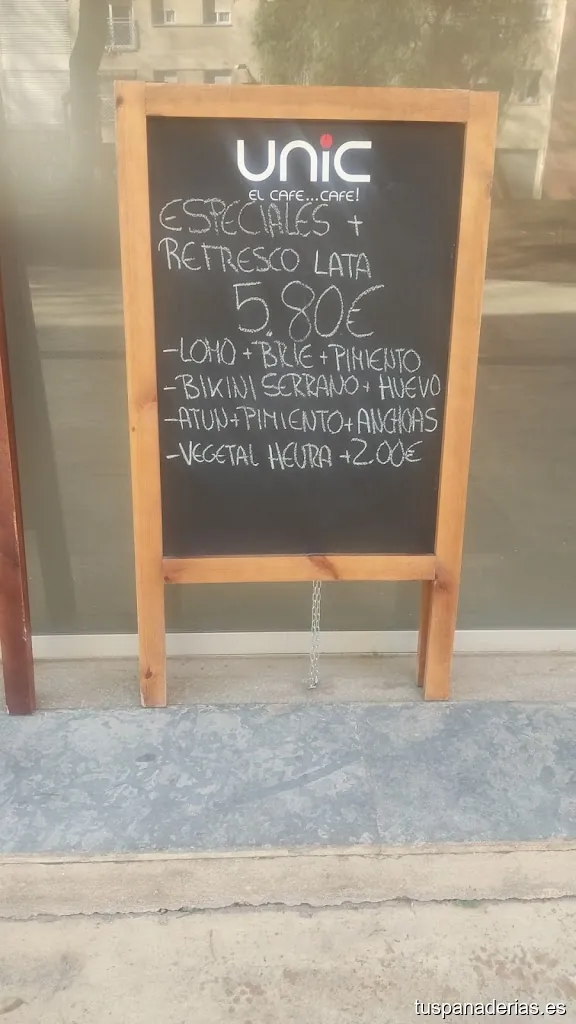 UNiC
EL CAFE...CAFE!
ESPECIALES +
REFRESCO LATA
5.80€
-LOMO + BRIE + PIMIENTO
-BIKINI SERRANO + HUEVO
-ATUN+PIMIENTO+ANCHOAS
-VEGETAL HEURA +2.00€
tuspanaderias.es